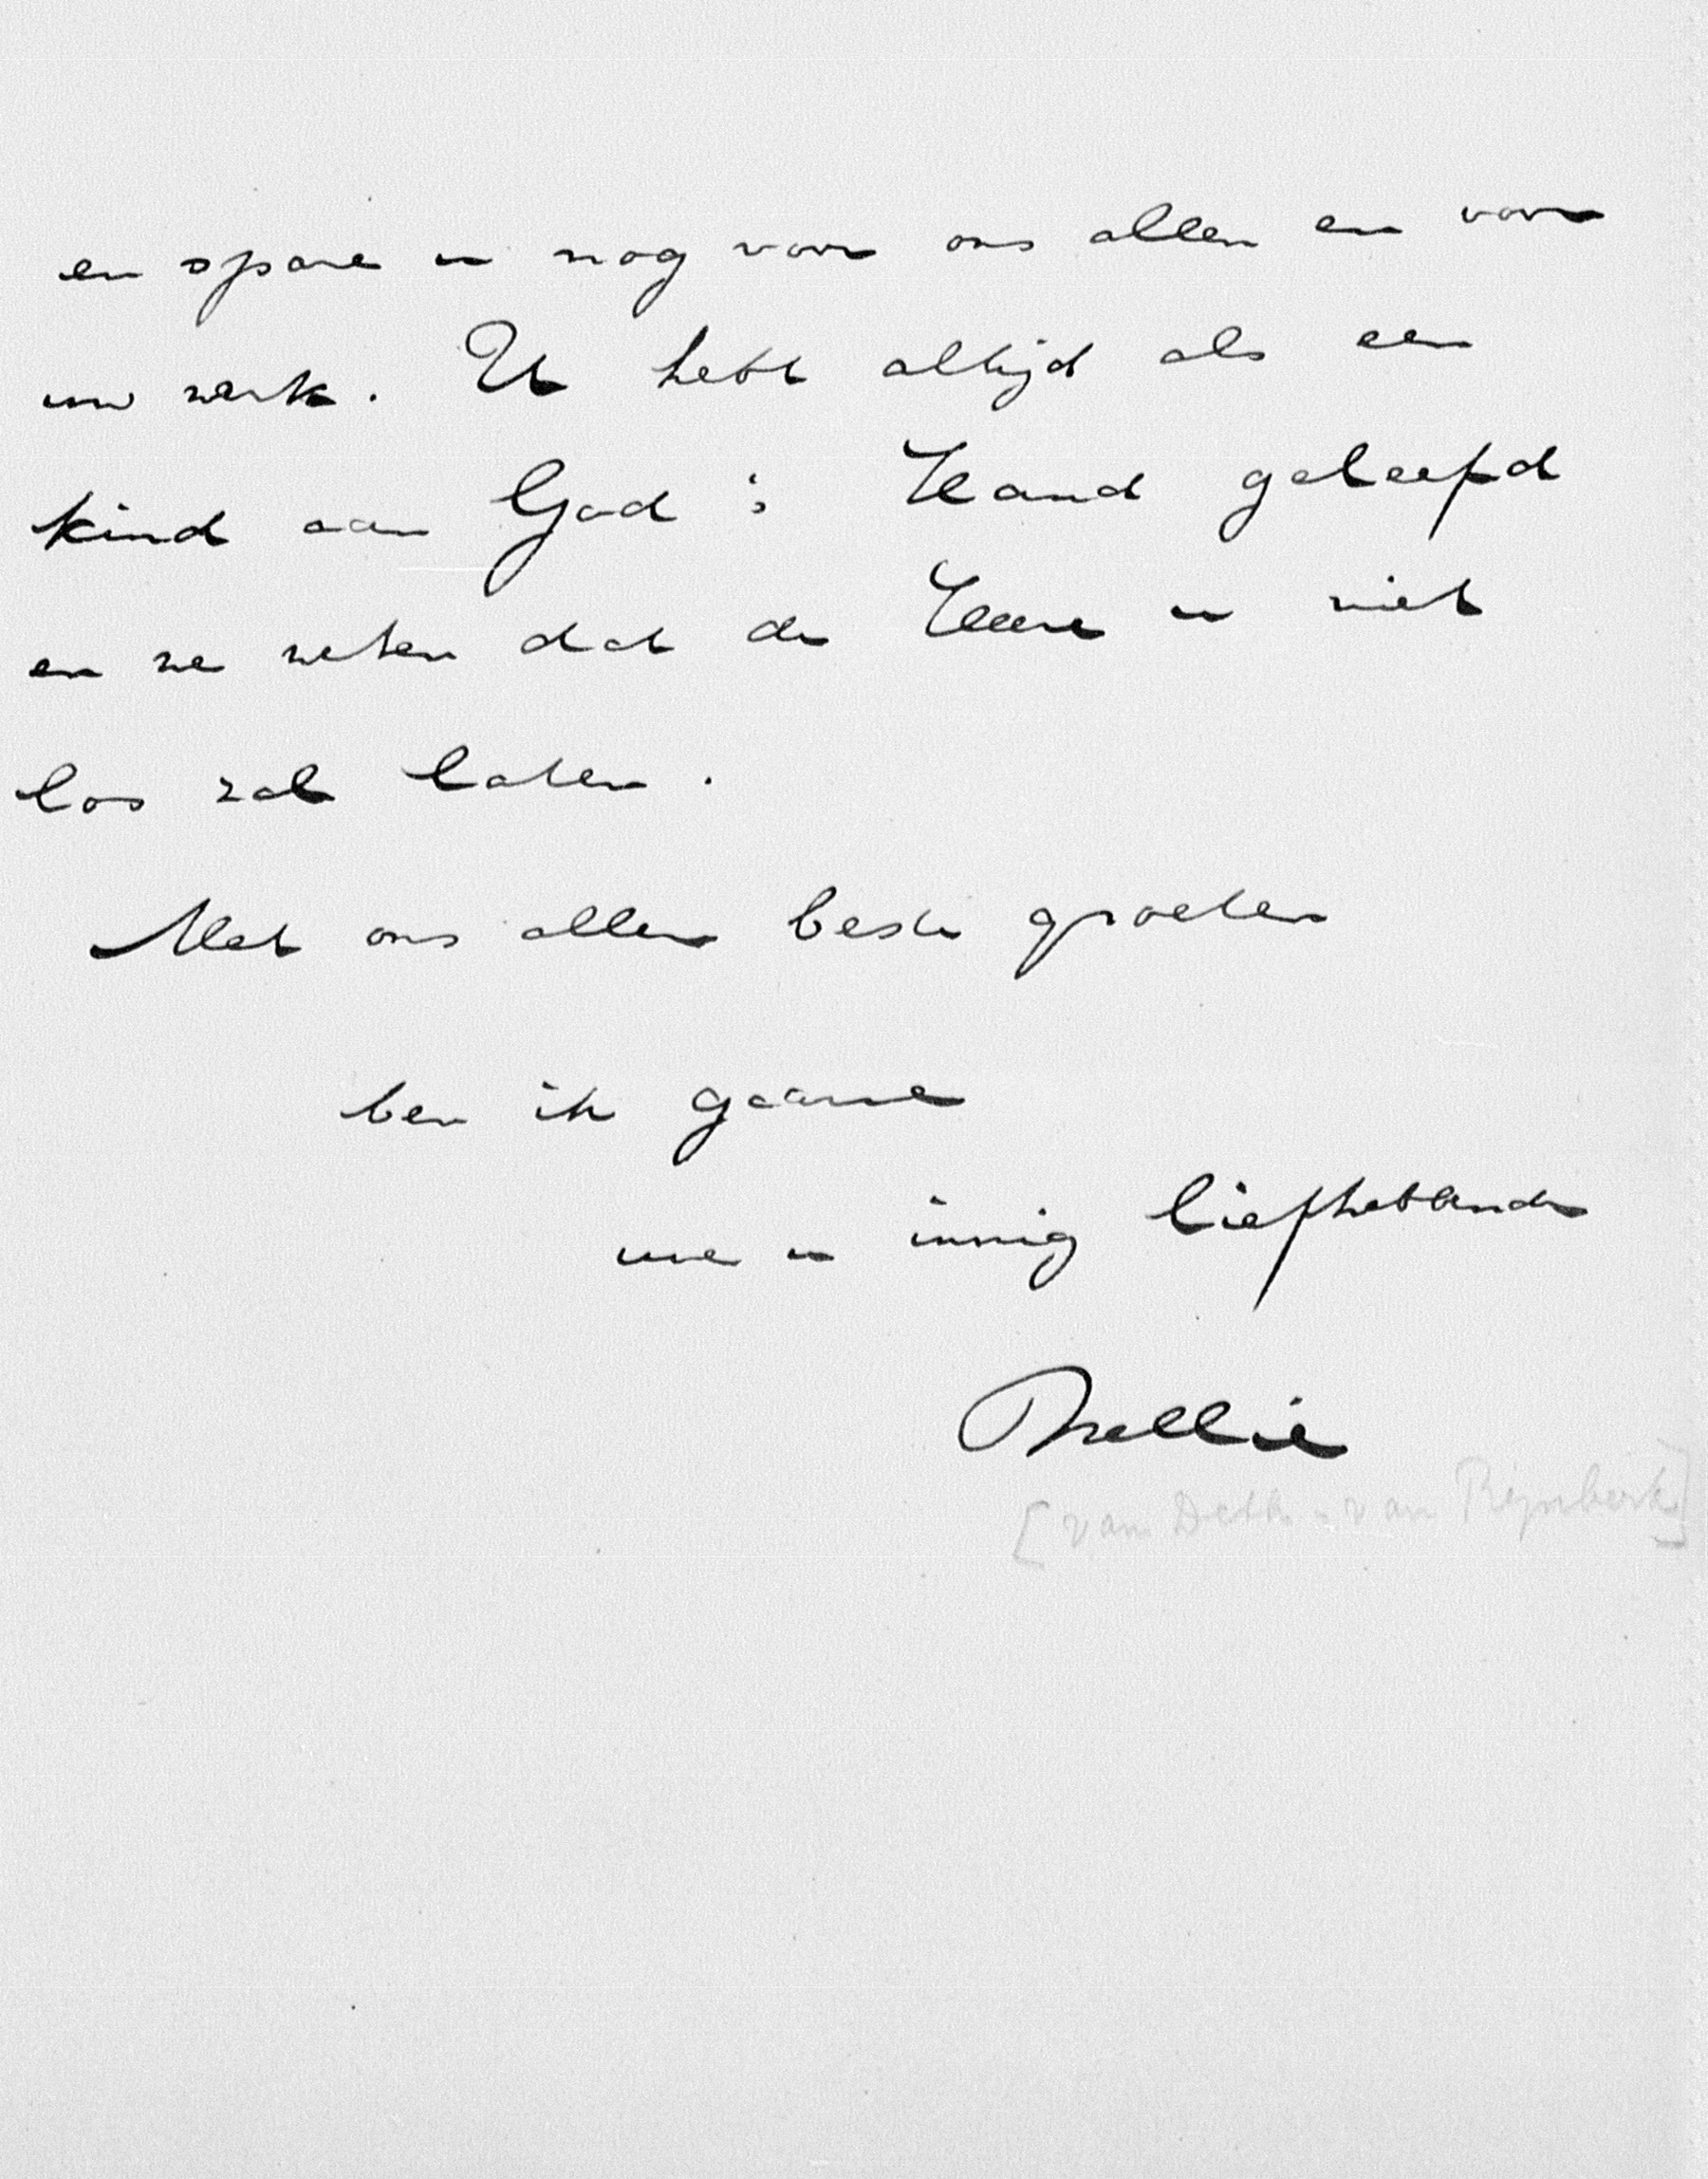 en spare u nog voor ons allen en voor
uw werk. U hebt altijd als een
kind aan God's Hand geleefd
en we weten dat de Heere u niet
los zal laten.
Met ons aller beste groeten
ben ik gaarne
uwe u innig liefhebbende
Nellie
[van Deth - van Rijnberk]